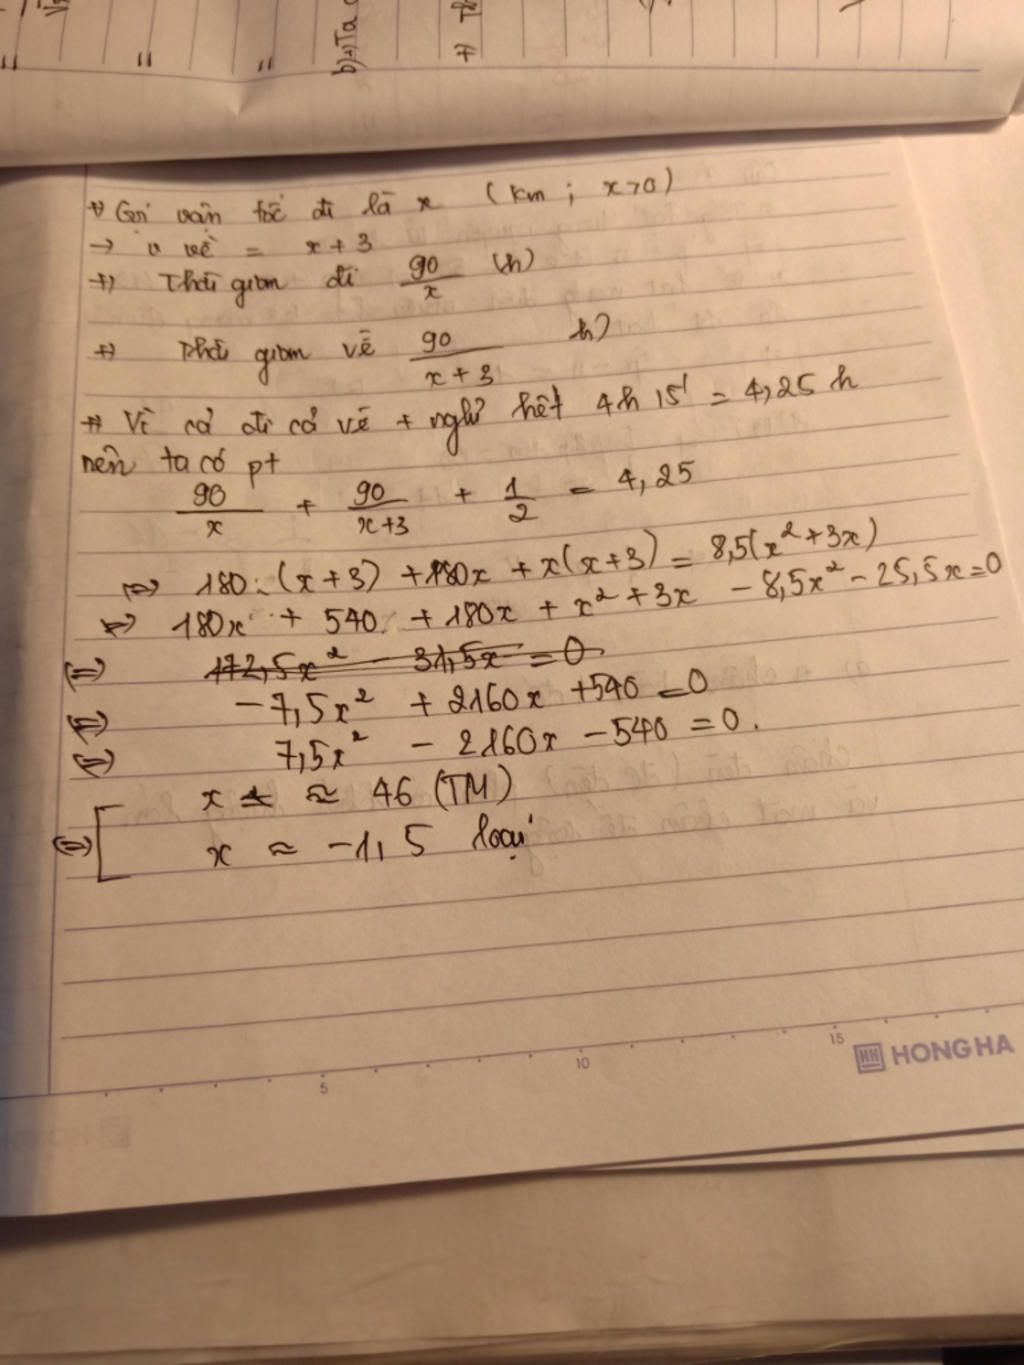 b)+)Ta
+) Gọi vận tốc đi là x (km ; x>0)
→ v về = x + 3
+) Thời gian đi 90/x (h)
+) Thời gian về 90/(x + 3) h)
+) Vì cả đi cả về + nghỉ hết 4h 15' = 4,25 h
nên ta có pt
90/x + 90/(x+3) + 1/2 = 4,25
⇔ 180.(x+3) + 180x + x(x+3) = 8,5(x² + 3x)
⇔ 180x + 540 + 180x + x² + 3x - 8,5x² - 25,5x = 0
⇔ 172,5x² - 31,5x = 0
⇔ -7,5x² + 2160x + 540 = 0
⇔ 7,5x² - 2160x - 540 = 0.
x ≈ 46 (TM)
⇔ [ x ≈ -1,5 loại
5 10 15 HH HONG HA